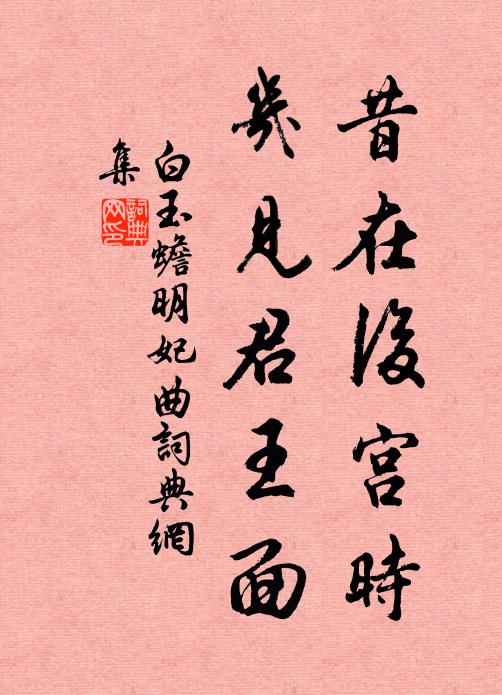 昔在後宮時
幾見君王面
白玉蟾明妃曲詞典網
集
詞典網印